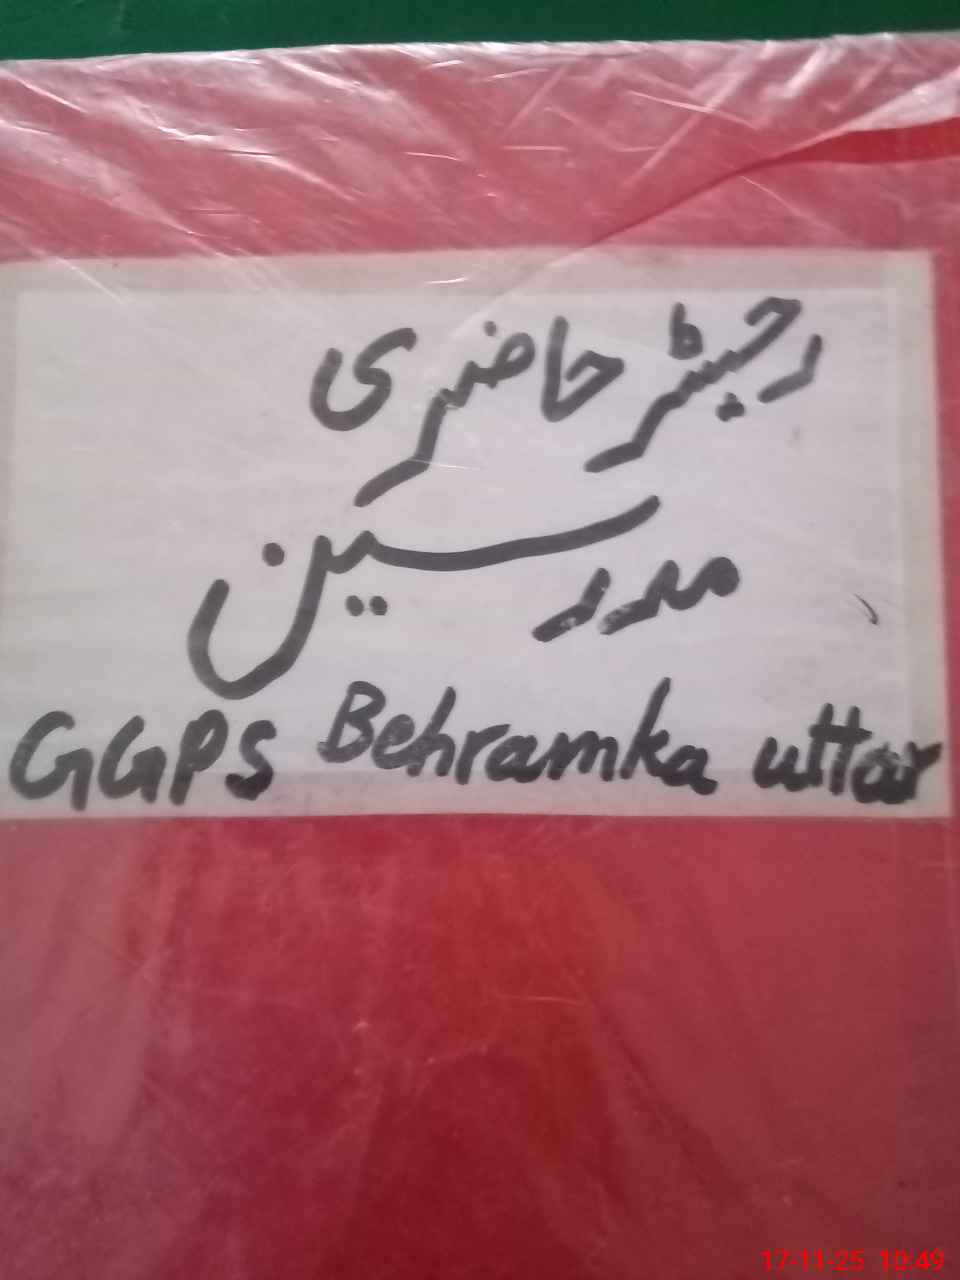 رجسٹر حاضری
مدرسین
GGPS Behramka uttar
17-11-25 10:49